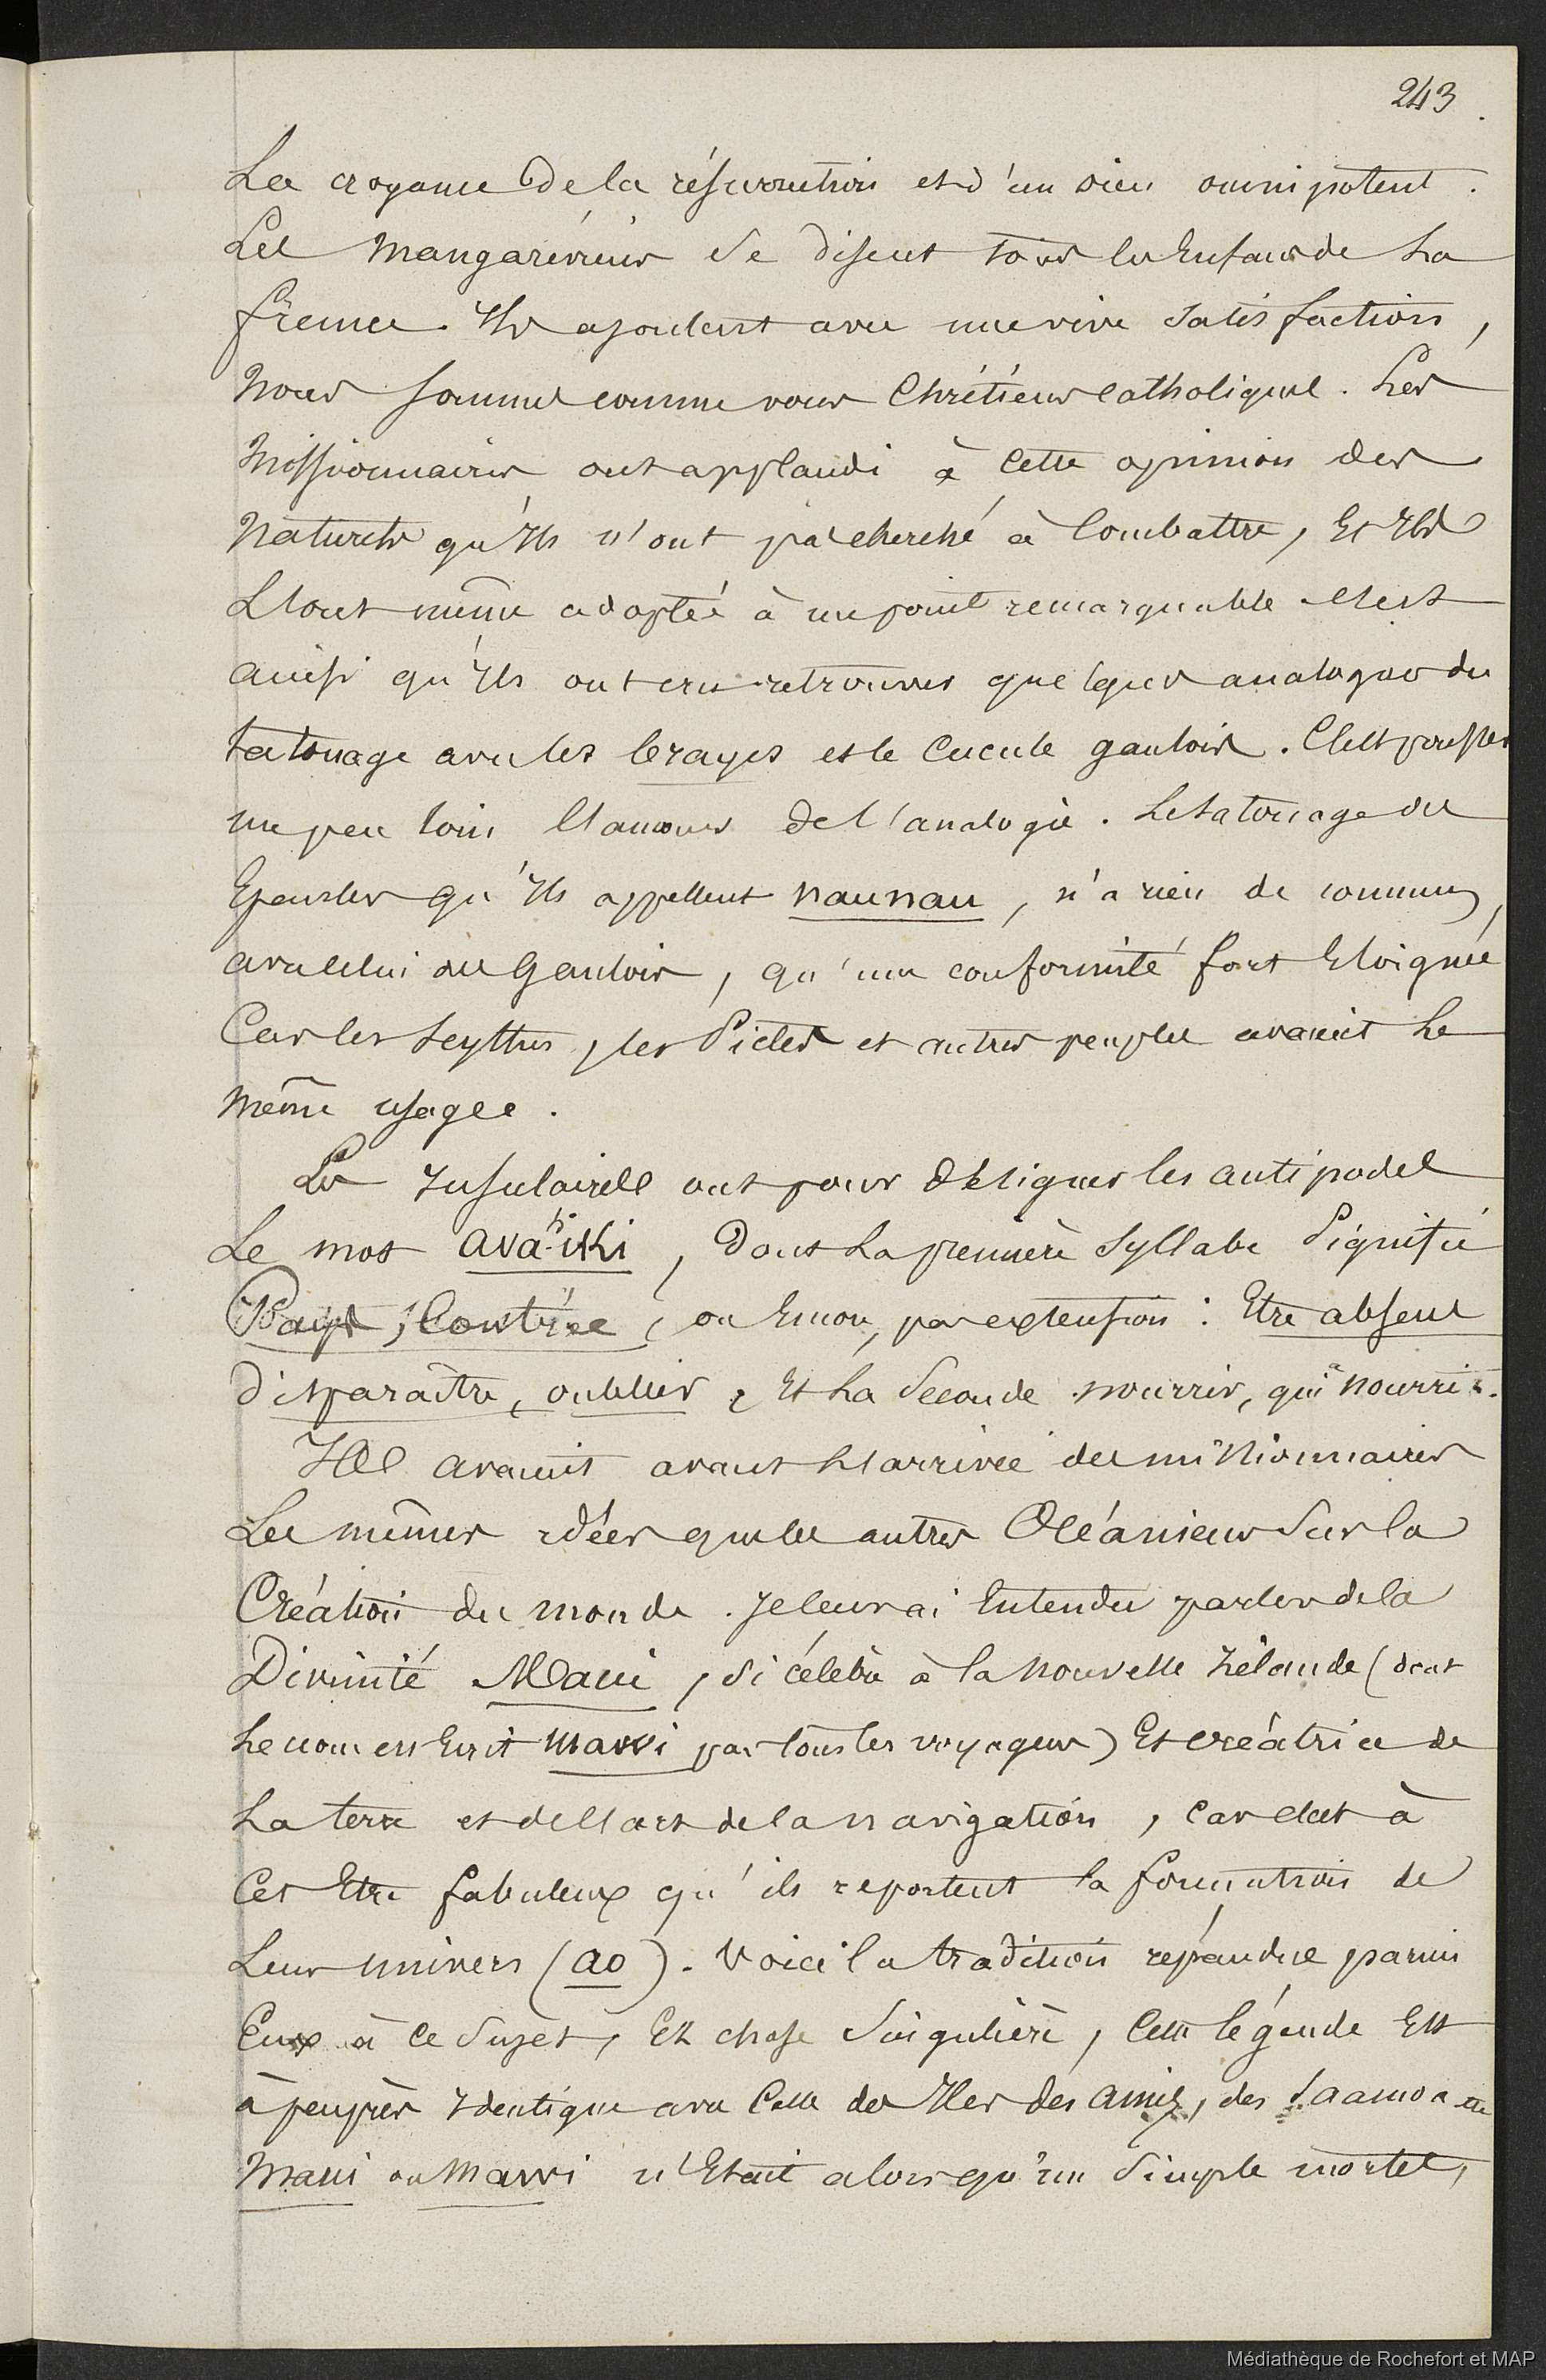 243
La croyance de la résurrection et d'un dieu omnipotent.
Les mangaréviens se disent tous les Enfans de La
france. Ils ajoutent avec une vive satisfaction,
Nous sommes comme vous Chrétiens catholiques. Les
Missionnaires ont applaudi à cette opinion des
Naturels qu'ils n'ont pas cherché à Combattre, Et Ils
L'ont même adoptée à un point remarquable. C'est
ainsi qu'ils ont cru retrouver quelques analogies du
tatouage avec les brayes et le Cucule gaulois. C'est pousser
un peu loin l'amour de l'analogie. Le tatouage des
Epaules qu'ils appellent naunau, n'a rien de commun,
avec celui des Gaulois, qu'une conformité fort Eloignée
Car les Scythes, les Pictes et autres peuples avaient Le
même usage.
Les Insulaires ont pour désigner les antipodes
Le mot ava-iki, Dont La première syllabe Signifie
Pays, Contrée, ou Encore, par extension : Etre absent
disparaître, oublier, Et La Seconde nourrir, qui nourrit.
Ils avaient avant L'arrivée des missionnaires
Les mêmes idées que les autres Océaniens Sur la
Création du monde. Je leur ai Entendu parler de la
Divinité Maui, Si célèbre à la nouvelle Zélande (dont
Le nom est Ecrit mawi par tous les voyageurs) Et créatrice de
La terre et de l'art de la navigation, Car c'est à
Cet Etre fabuleux qu'ils reportent la formation de
Leur univers (ao). Voici la tradition répandue parmi
Eux à ce Sujet, Et chose Singulière, Cette légende Est
à peu près Identique avec Celle des Iles des amis, des Samoa etc
Maui ou Mawi n'Etait alors qu'un Simple mortel,
Médiathèque de Rochefort et MAP